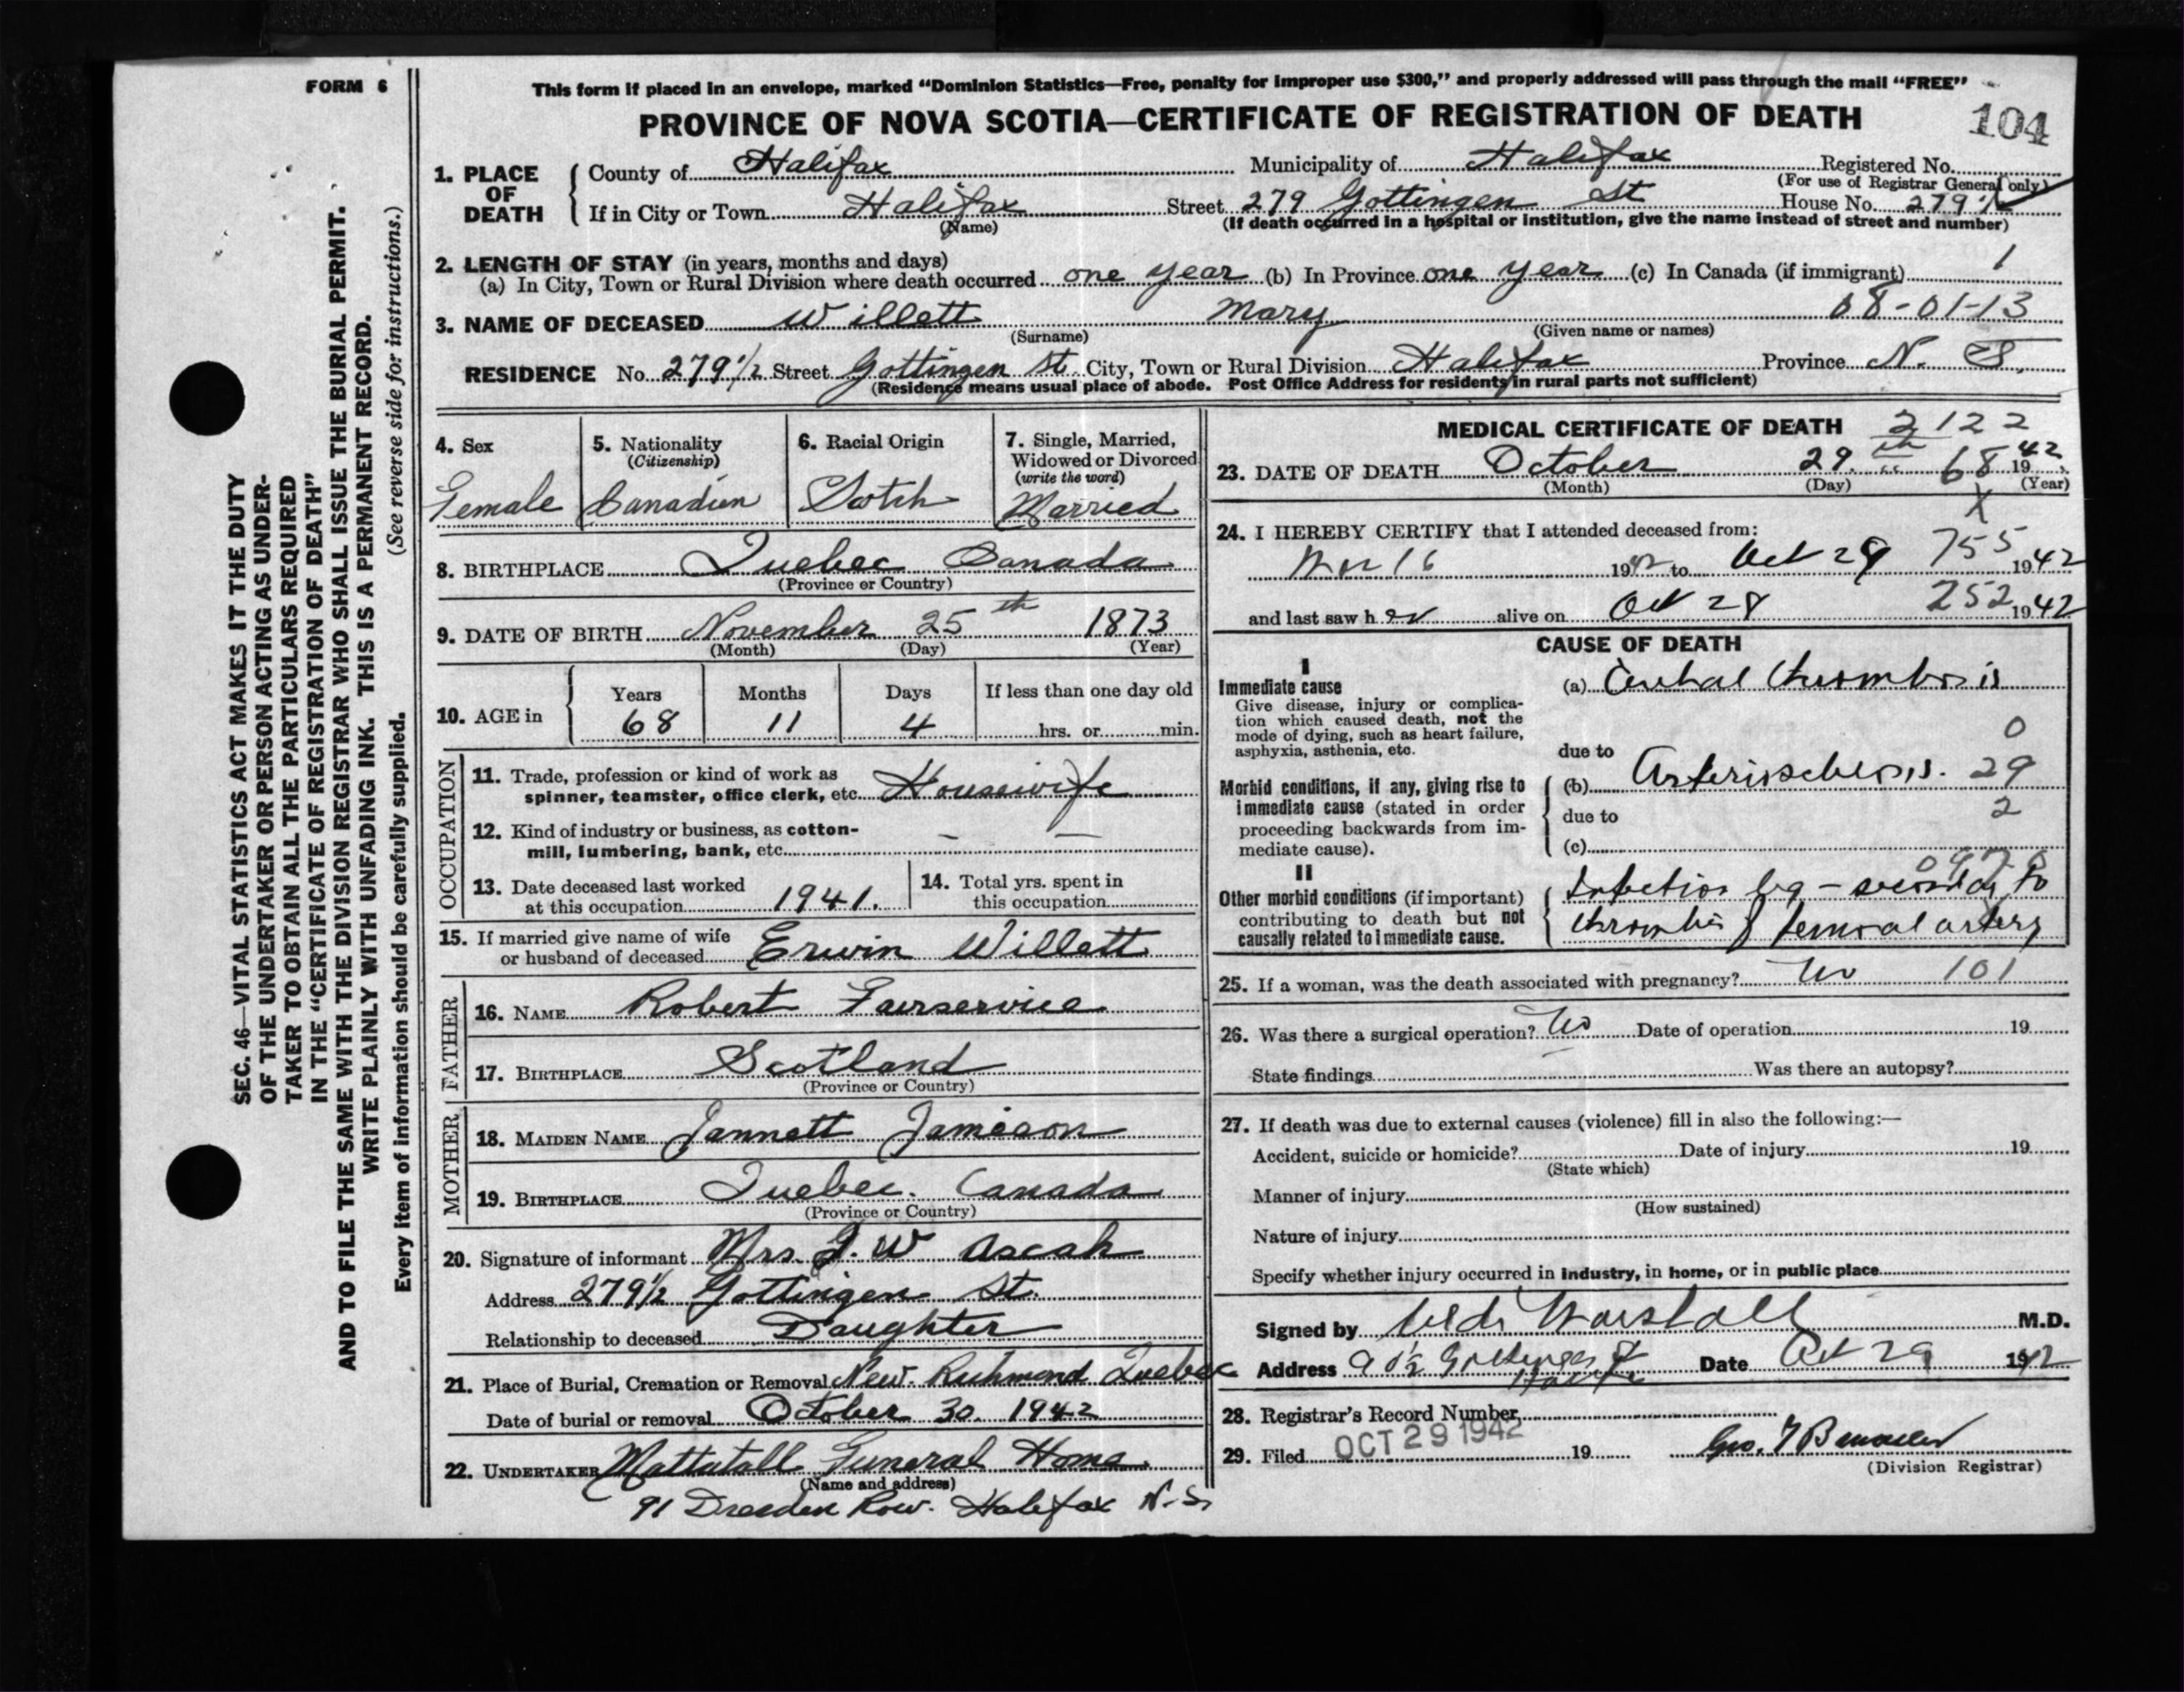 FORM 6
This form if placed in an envelope, marked “Dominion Statistics—Free, penalty for improper use $300,” and properly addressed will pass through the mail “FREE”
PROVINCE OF NOVA SCOTIA—CERTIFICATE OF REGISTRATION OF DEATH
104
1. PLACE OF DEATH
County of Halifax Municipality of Halifax Registered No.
(For use of Registrar General only)
If in City or Town Halifax Street 279 Gottingen St House No. 279½
(Name) (If death occurred in a hospital or institution, give the name instead of street and number)
2. LENGTH OF STAY (in years, months and days)
(a) In City, Town or Rural Division where death occurred one year (b) In Province one year (c) In Canada (if immigrant) 1
08-01-13
3. NAME OF DECEASED Willett Mary
(Surname) (Given name or names)
RESIDENCE No. 279½ Street Gottingen St. City, Town or Rural Division Halifax Province N. S.
(Residence means usual place of abode. Post Office Address for residents in rural parts not sufficient)
4. Sex
Female
5. Nationality
(Citizenship)
Canadian
6. Racial Origin
Scotch
7. Single, Married,
Widowed or Divorced
(write the word)
Married
8. BIRTHPLACE Quebec Canada
(Province or Country)
9. DATE OF BIRTH November 25th 1873
(Month) (Day) (Year)
10. AGE in
Years Months Days If less than one day old
68 11 4 hrs. or min.
OCCUPATION
11. Trade, profession or kind of work as
spinner, teamster, office clerk, etc. Housewife
12. Kind of industry or business, as cotton-
mill, lumbering, bank, etc. — —
13. Date deceased last worked
at this occupation 1941.
14. Total yrs. spent in
this occupation
15. If married give name of wife
or husband of deceased Erwin Willett
FATHER
16. NAME Robert Fairservice
17. BIRTHPLACE Scotland
(Province or Country)
MOTHER
18. MAIDEN NAME Jannett Jamieson
19. BIRTHPLACE Quebec. Canada
(Province or Country)
20. Signature of informant Mrs. J. W Ascah
Address 279½ Gottingen St.
Relationship to deceased Daughter
21. Place of Burial, Cremation or Removal New. Richmond Quebec
Date of burial or removal October 30. 1942
22. UNDERTAKER Mattatall Funeral Home.
(Name and address)
91 Dresden Row. Halifax N.S.
MEDICAL CERTIFICATE OF DEATH 2122
23. DATE OF DEATH October 29.th 68 1942
(Month) (Day) (Year)
X
24. I HEREBY CERTIFY that I attended deceased from:
16 1942 to Oct 29 755 1942
and last saw her alive on Oct 28 252 1942
CAUSE OF DEATH
I
Immediate cause
Give disease, injury or complica-
tion which caused death, not the
mode of dying, such as heart failure,
asphyxia, asthenia, etc.
(a) Cerebral thrombosis
0
due to
Morbid conditions, if any, giving rise to
immediate cause (stated in order
proceeding backwards from im-
mediate cause).
(b) Arteriosclerosis. 29
due to 2
(c)
II
Other morbid conditions (if important)
contributing to death but not
causally related to immediate cause.
Infection leg – secondary to
thrombus of femoral artery
25. If a woman, was the death associated with pregnancy? No 101
26. Was there a surgical operation? No Date of operation 19
State findings Was there an autopsy?
27. If death was due to external causes (violence) fill in also the following:—
Accident, suicide or homicide? Date of injury 19
(State which)
Manner of injury
(How sustained)
Nature of injury
Specify whether injury occurred in industry, in home, or in public place
Signed by Marshall M.D.
Address Gottingen St Date Oct 29 1942
Halifax
28. Registrar's Record Number
29. Filed OCT 29 1942 19 Geo.
(Division Registrar)
SEC. 46—VITAL STATISTICS ACT MAKES IT THE DUTY
OF THE UNDERTAKER OR PERSON ACTING AS UNDER-
TAKER TO OBTAIN ALL THE PARTICULARS REQUIRED
IN THE “CERTIFICATE OF REGISTRATION OF DEATH”
AND TO FILE THE SAME WITH THE DIVISION REGISTRAR WHO SHALL ISSUE THE BURIAL PERMIT.
WRITE PLAINLY WITH UNFADING INK. THIS IS A PERMANENT RECORD.
(See reverse side for instructions.)
Every item of information should be carefully supplied.